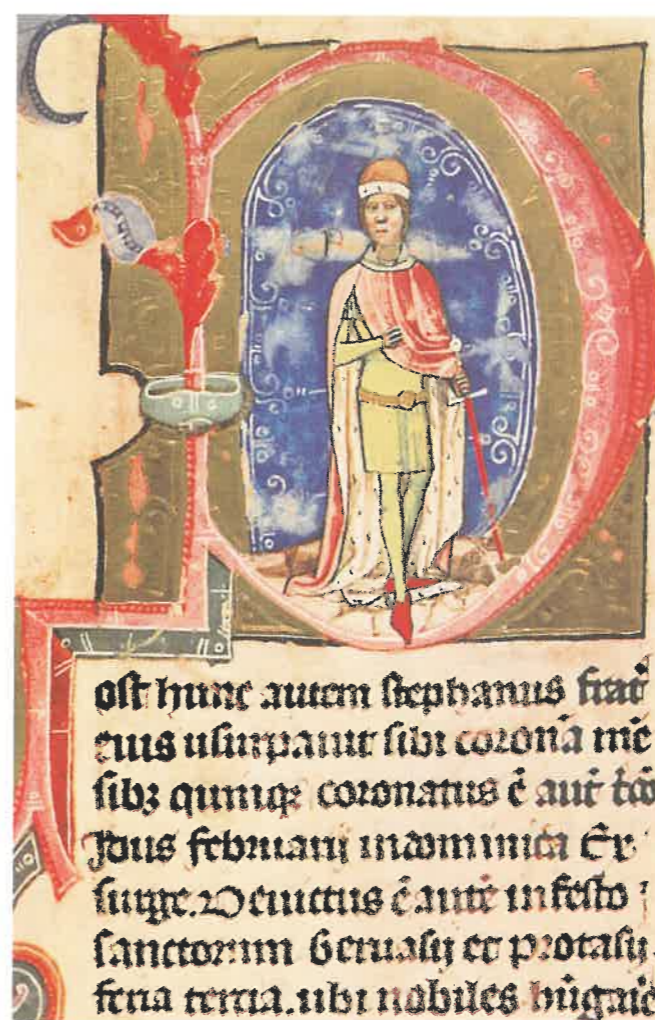 ost hunc autem stephanus frat̄
eius usurpauit sibi corona mē
sibȝ quinqȝ coronatus ē aut̄
Idus februarij indominica Ex
surge. Deuictus ē autē in festo
sanctorum Geruasij et protasij.
feria tercia. ubi nobiles hūgaie